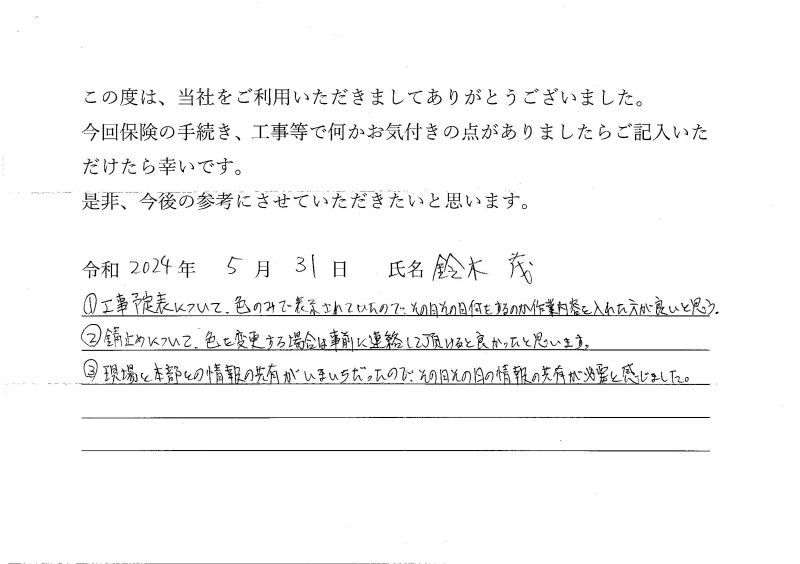 この度は、当社をご利用いただきましてありがとうございました。
今回保険の手続き、工事等で何かお気付きの点がありましたらご記入いた
だけたら幸いです。
是非、今後の参考にさせていただきたいと思います。
令和 2024 年 5 月 31 日 氏名 鈴木 茂
①工事予定表について、色のみで表示されていたので、その日その日何をするのか作業内容を入れた方が良いと思う。
②錆止めについて、色を変更する場合は事前に連絡して頂けると良かったと思います。
③現場と本部との情報の共有がいまいちだったので、その日その日の情報の共有が必要と感じました。